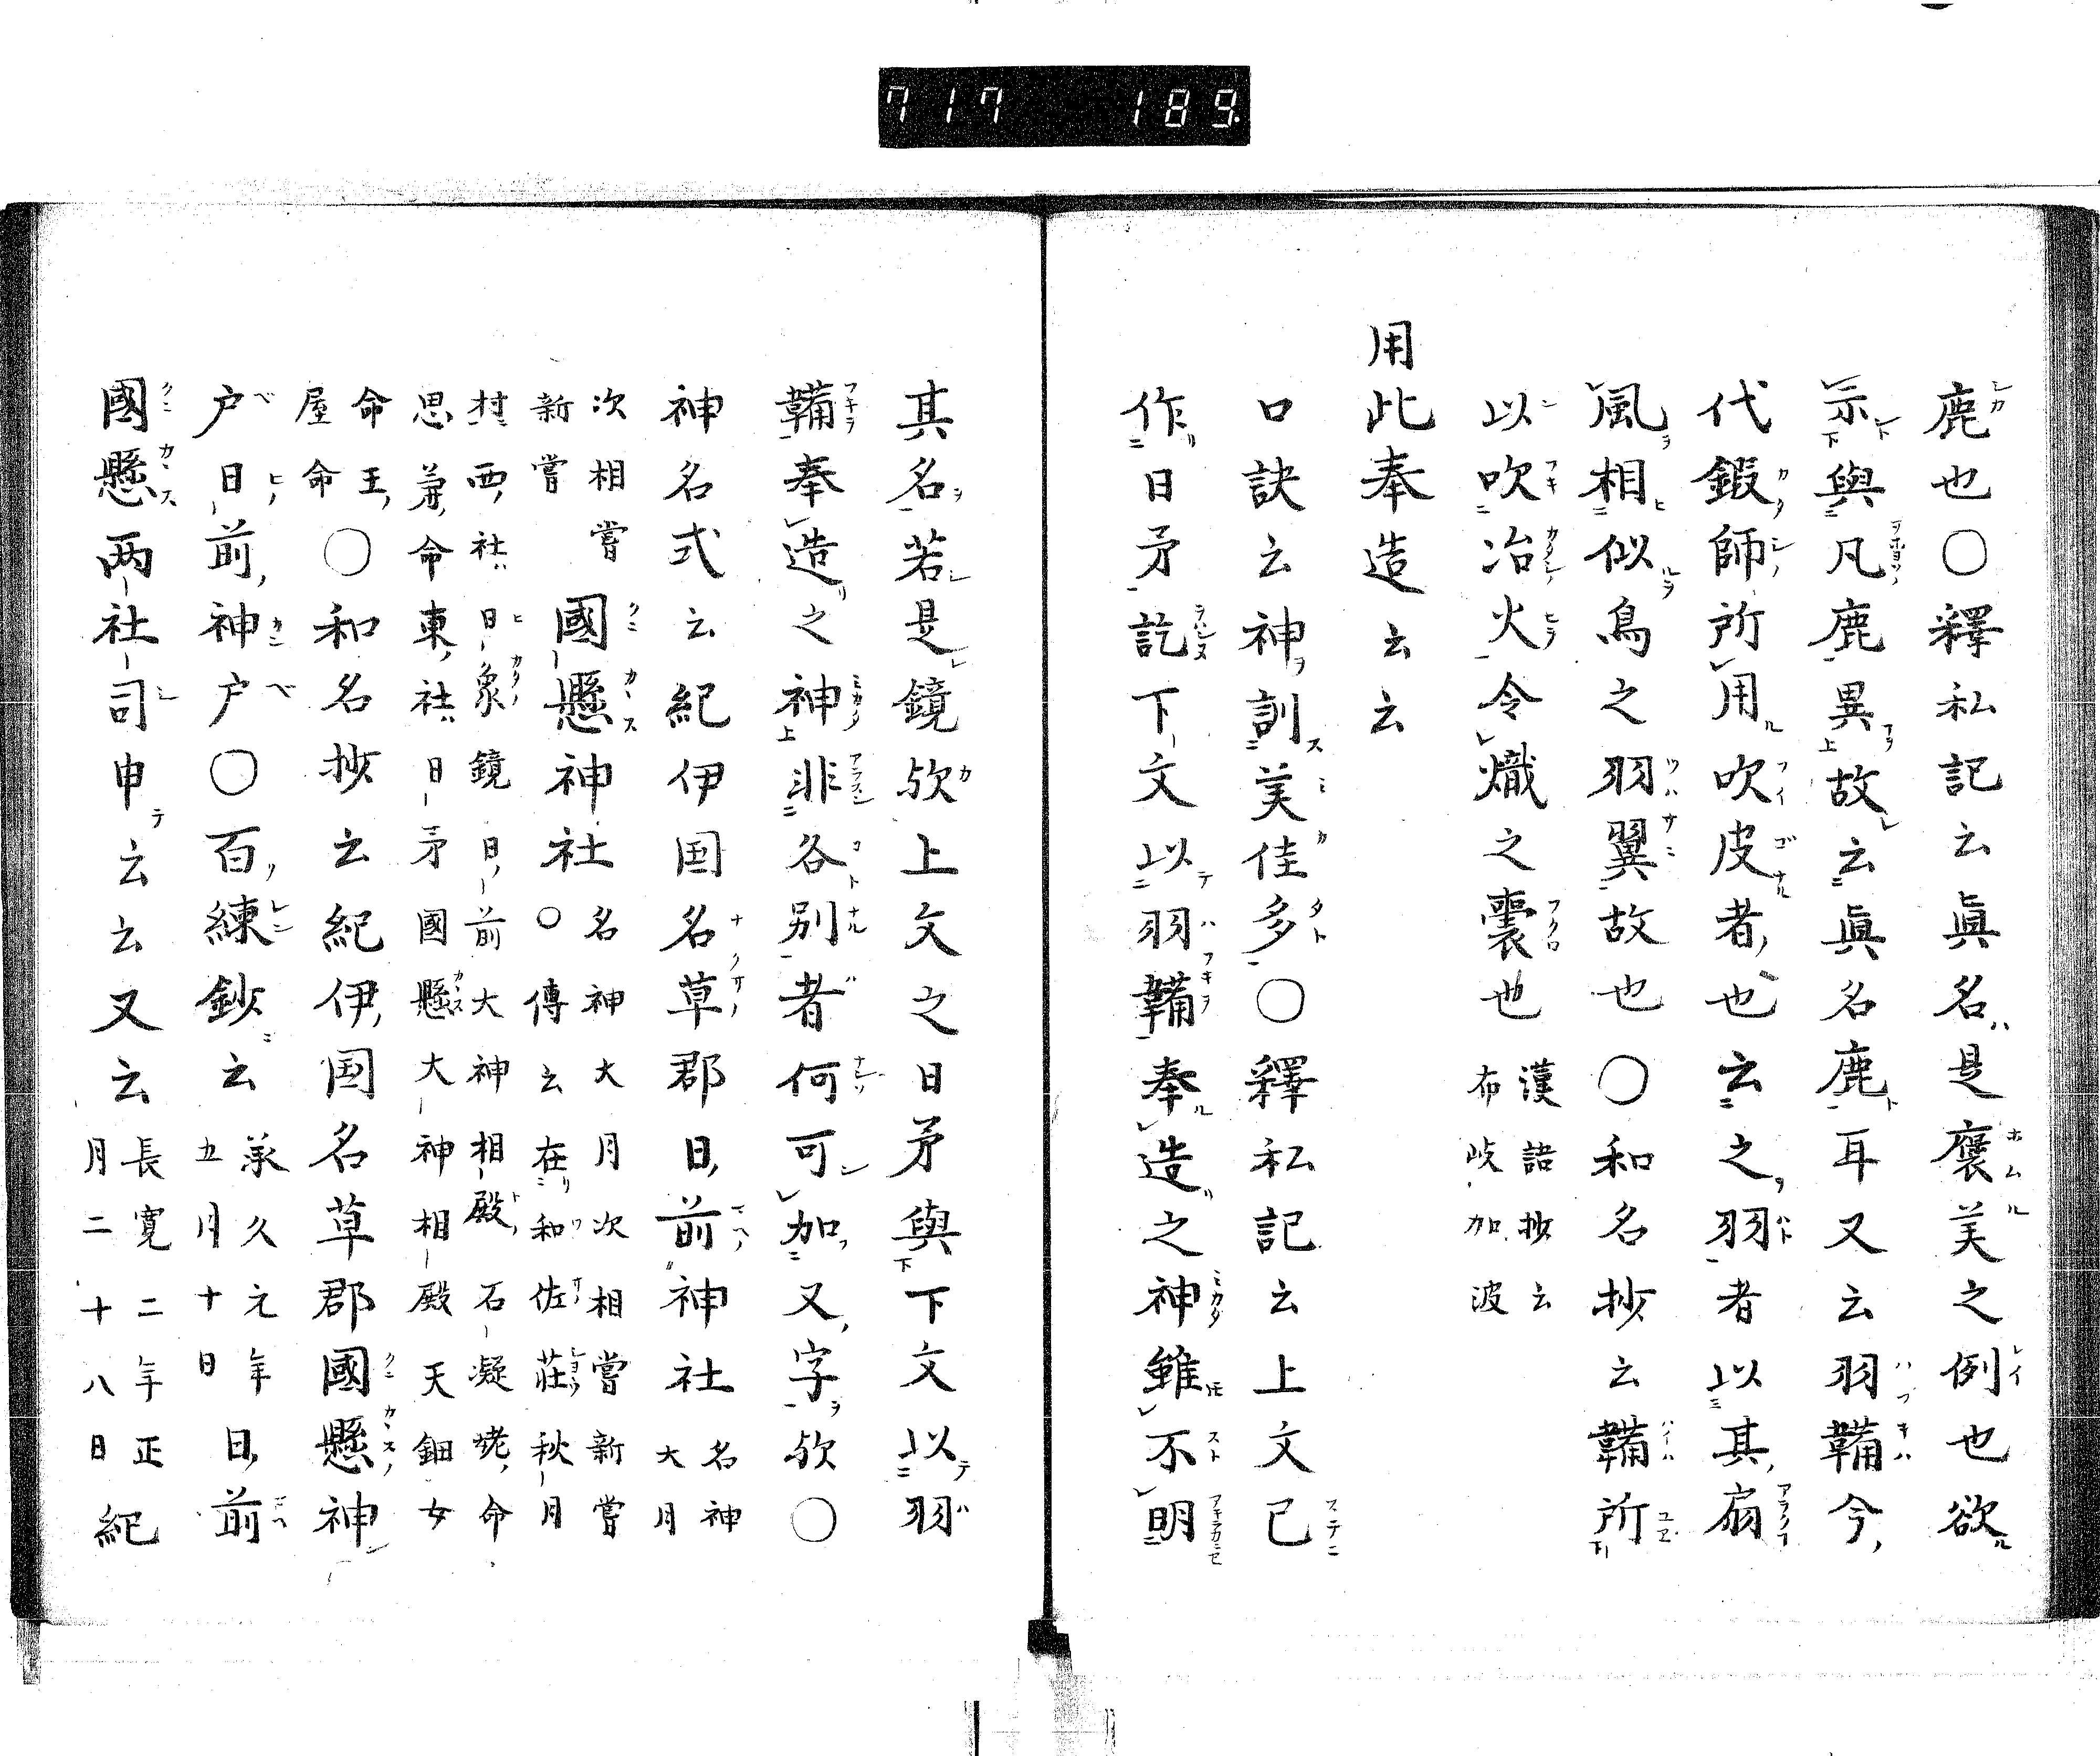 717 189
鹿也〇釋私記云眞名是褒美之例也欲
示與凡鹿異故云眞名鹿耳又云羽鞴今
代鍜師所用吹皮者也云之羽者以其扇
風相似鳥之羽翼故也〇和名抄云鞴所
以吹冶火令熾之囊也 漢語抄云
布岐加波
用此奉造云云
口訣云神訓美佳多〇釋私記云上文已
作日矛訖下文以羽鞴奉造之神雖不明
其名若是鏡欤上文之日矛與下文以羽
鞴奉造之神非各別者何可加又字欤〇
神名式云紀伊国名草郡日前神社 名神
大月
次相嘗
新嘗 國懸神社 名神大月次相嘗新嘗
〇傳云在和佐莊秋月
村西社日象鏡日前大神相殿石凝姥命
思兼命東社日矛國懸大神相殿天鈿女
命玉
屋命 〇和名抄云紀伊国名草郡國懸神
戸日前神戸〇百練鈔云 承久元年
五月十日 日前
國懸两社司申云云又云 長寛二年正
月二十八日 紀